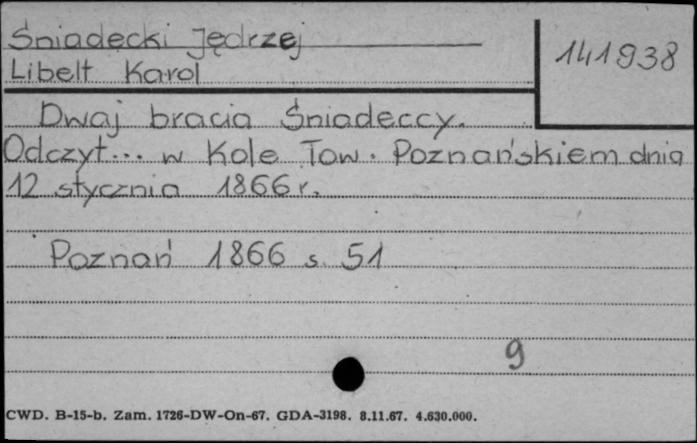 Śniadecki Jędrzej
141938
Libelt Karol
Dwaj bracia Śniadeccy.
Odczyt... w Kole Tow. Poznańskiem dnia
12 stycznia 1866 r.
Poznań 1866 s. 51
9
CWD. B-15-b. Zam. 1726-DW-On-67. GDA-3198. 8.11.67. 4.630.000.